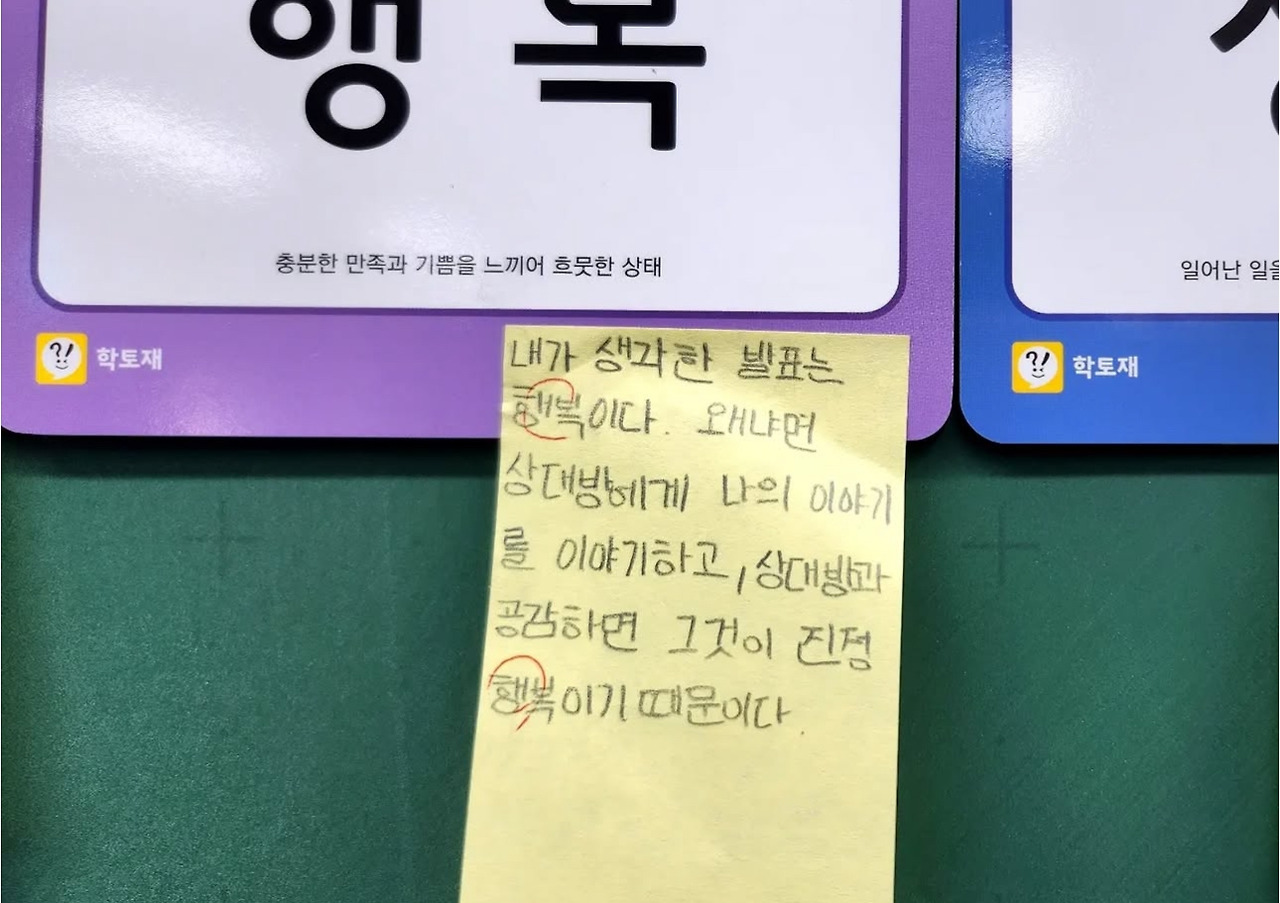 행복
충분한 만족과 기쁨을 느끼어 흐뭇한 상태
?! 학토재
일어난 일을
?! 학토재
내가 생각한 발표는
행복이다. 왜냐면
상대방에게 나의 이야기
를 이야기하고, 상대방과
공감하면 그것이 진정
행복이기 때문이다.